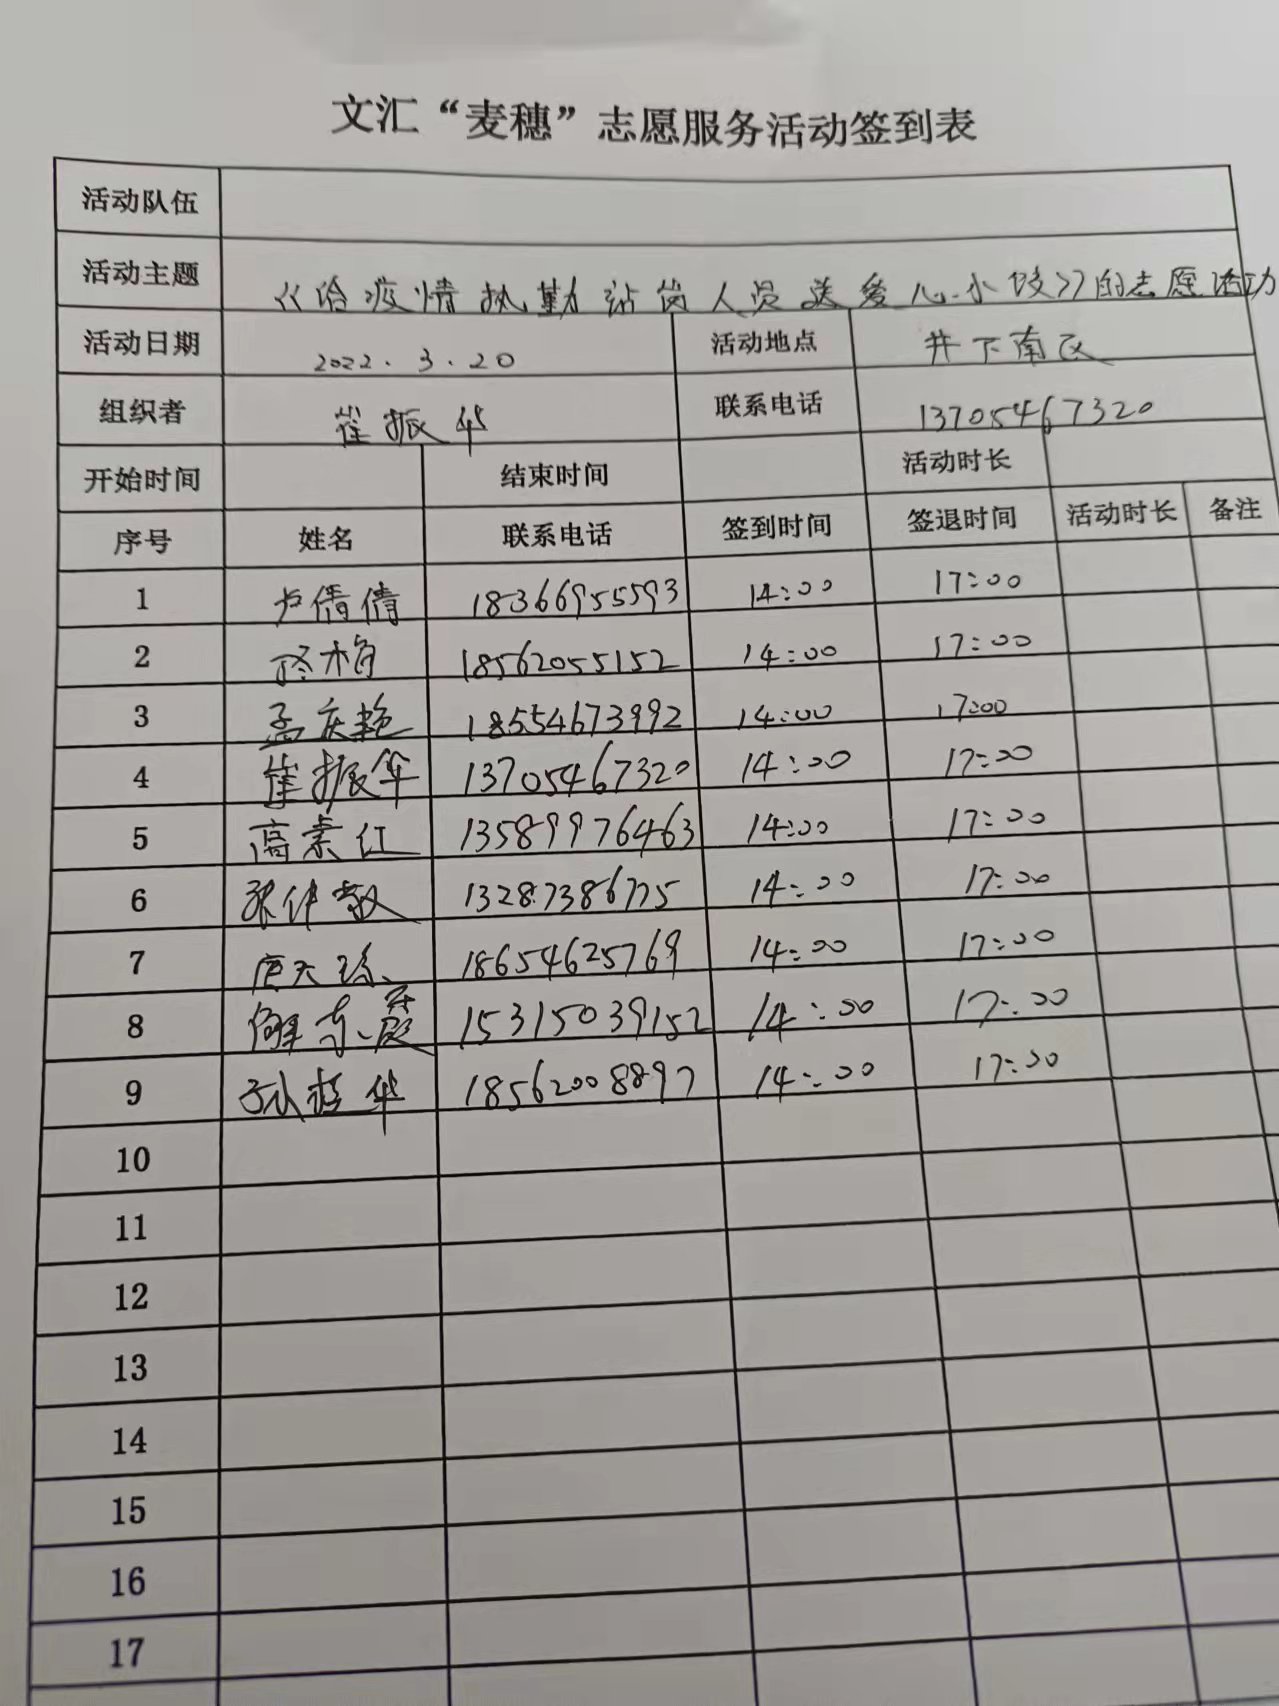 文汇“麦穗”志愿服务活动签到表
活动队伍
活动主题 《给疫情执勤站岗人员送爱心小饺》的志愿活动
活动日期 2022.3.20 活动地点 井下南区
组织者 崔振华 联系电话 13705467320
开始时间 结束时间 活动时长
序号 姓名 联系电话 签到时间 签退时间 活动时长 备注
1 卢倩倩 18366955593 14:00 17:00
2 18562055152 14:00 17:00
3 孟庆艳 18554673992 14:00 17:00
4 崔振华 13705467320 14:00 17:00
5 高素红 13589976463 14:00 17:00
6 13287386775 14:00 17:00
7 18654625769 14:00 17:00
8 15315039152 14:00 17:00
9 孙桂华 18562008897 14:00 17:00
10
11
12
13
14
15
16
17